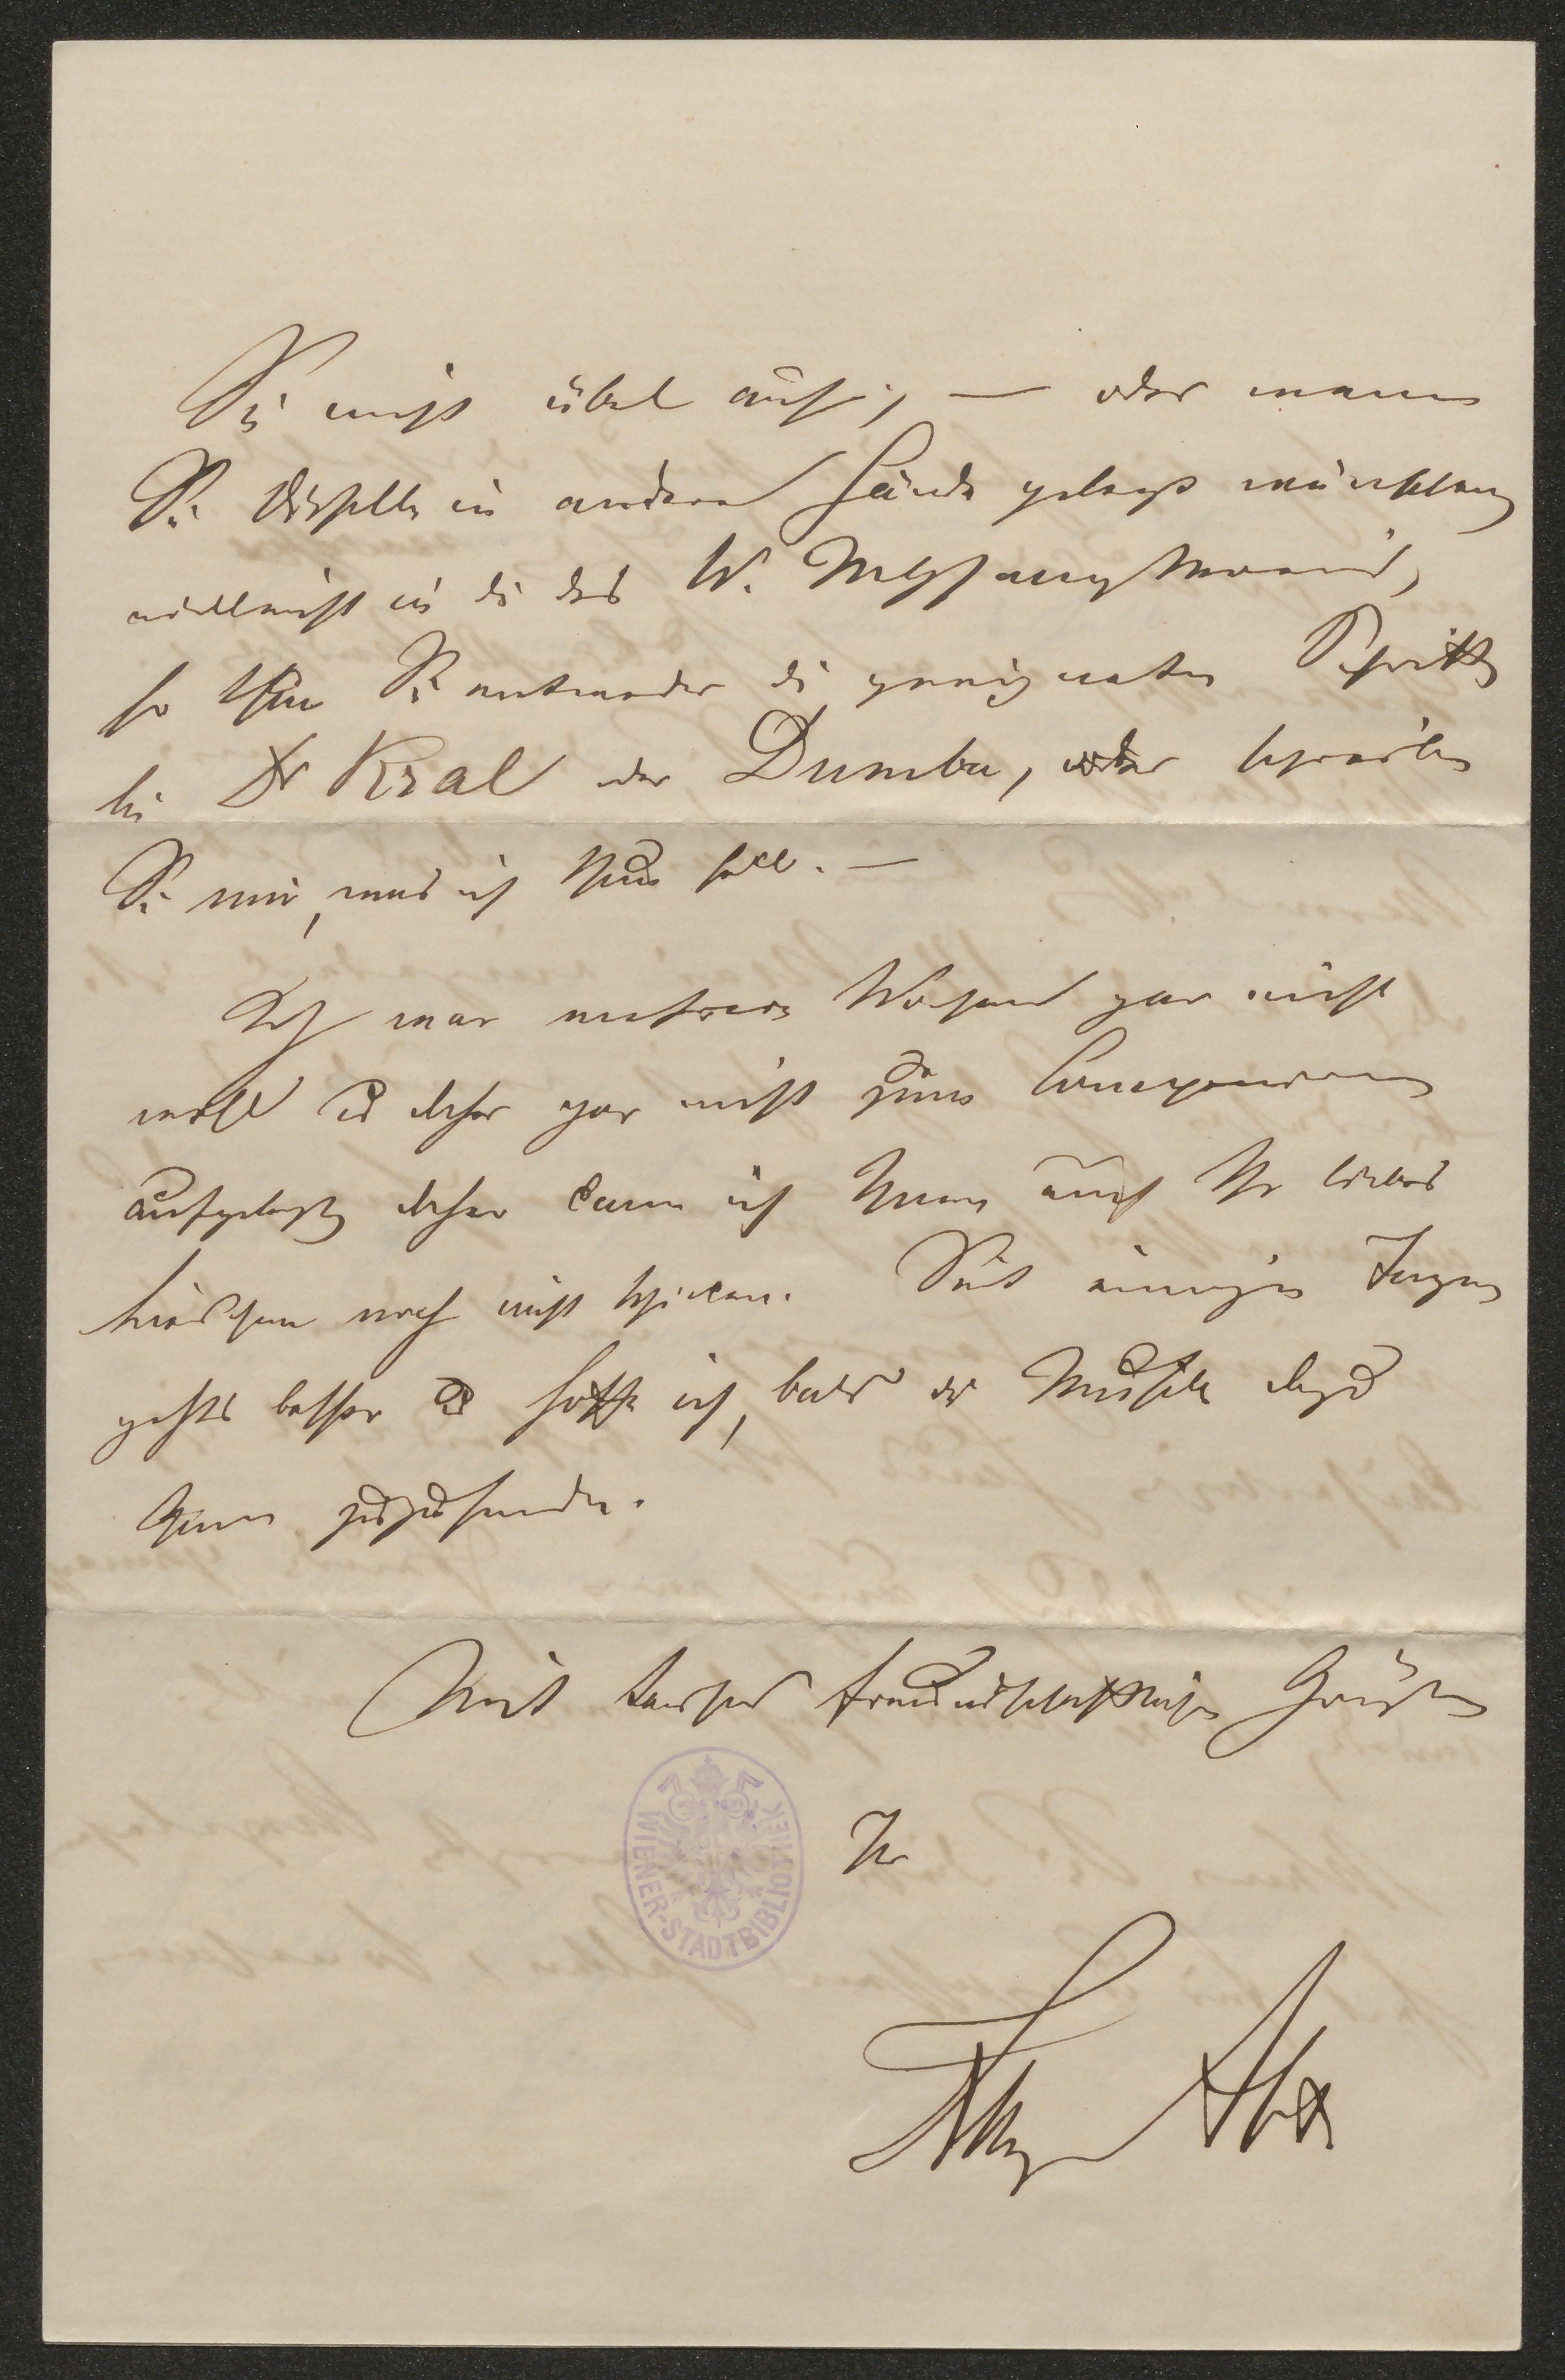 Sie nicht übel auf, — oder wenn
Sie dieselbe in andere Hände gelegt wünschten,
vielleicht in die des W. M Gesang Verein,
so thun Sie entweder die geeigneten Schritte
bei Dr Kral oder Dumba, oder schreiben
Sie mir, was ich thun soll. —
Ich war mehrere Wochen gar nicht
wohl u daher gar nicht zum Componiren
aufgelegt, daher kann ich Ihnen auch Ihr liebes
Liedchen noch nicht schicken. Seit einigen Tagen
gehts besser u hoffe ich, bald die Musik dazu
Ihnen zuzusenden.
Mit tausend freundschaftlichen Grüßen
Ihr
Franz Abt
WIENER-STADTBIBLIOTHEK